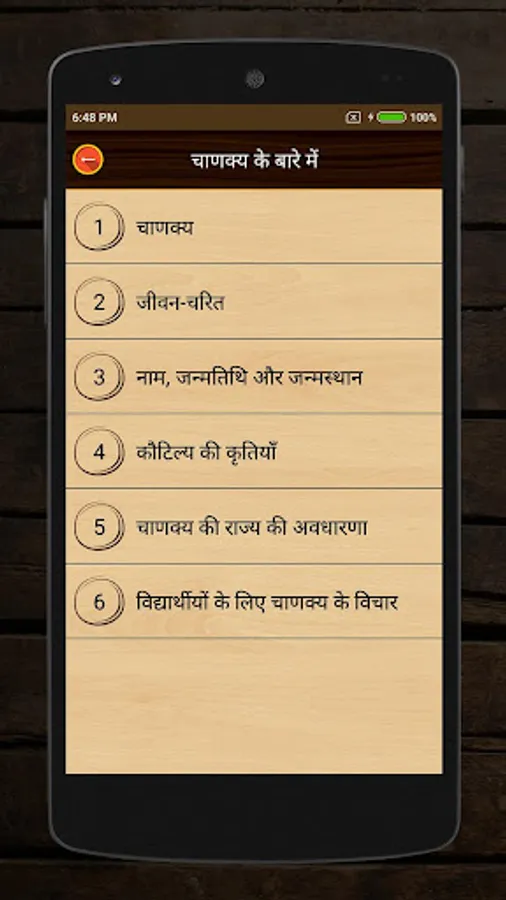 6:48 PM 100%
चाणक्य के बारे में
1 चाणक्य
2 जीवन-चरित
3 नाम, जन्मतिथि और जन्मस्थान
4 कौटिल्य की कृतियाँ
5 चाणक्य की राज्य की अवधारणा
6 विद्यार्थीयों के लिए चाणक्य के विचार